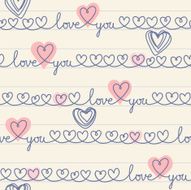 love you
love you
love you
love you